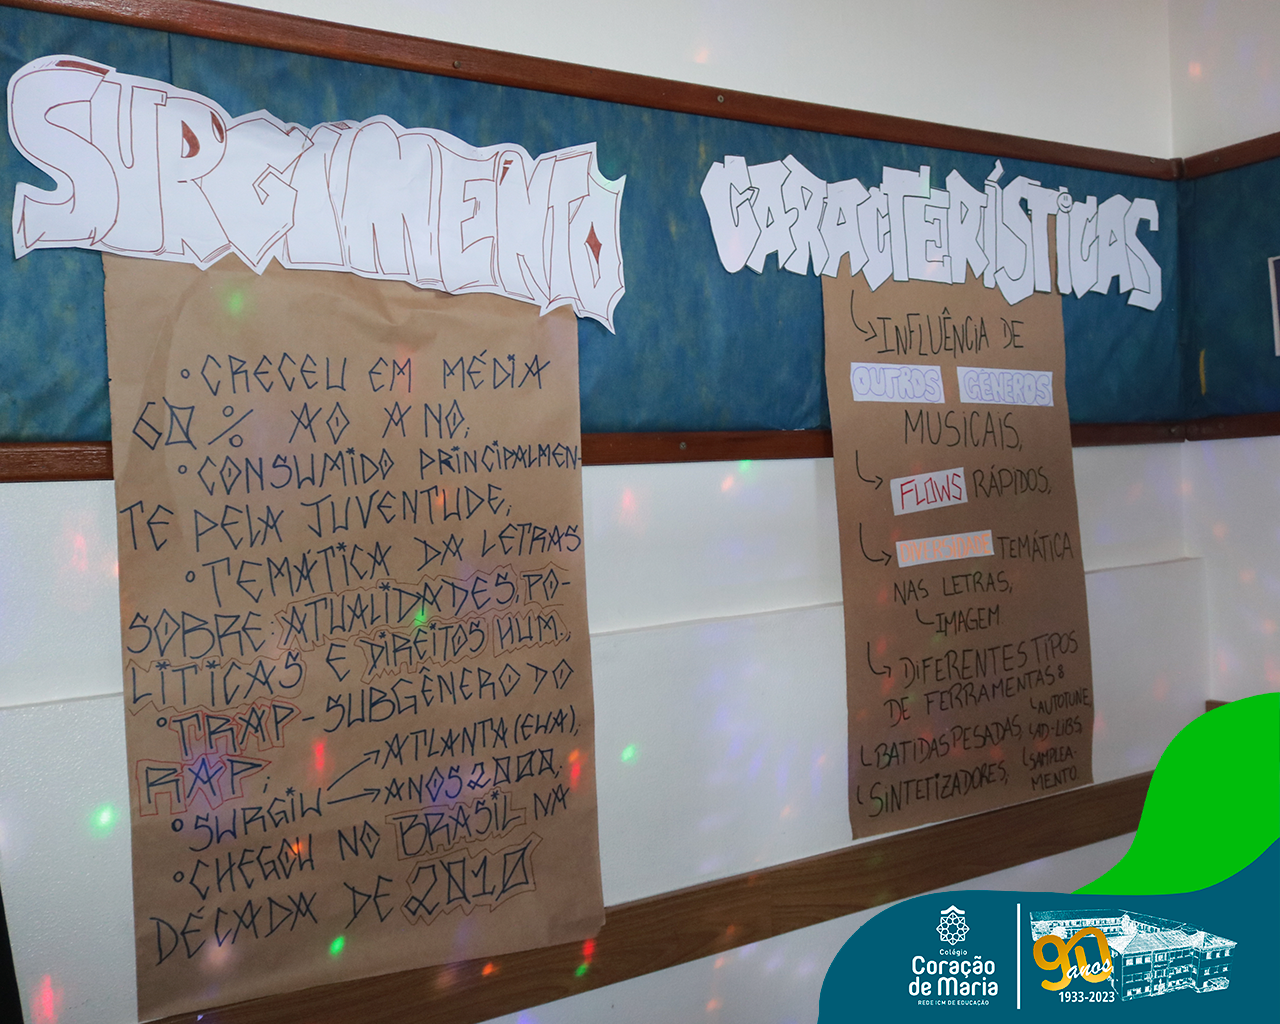 SURGIMENTO
• CRECEU EM MÉDIA
60% AO ANO;
• CONSUMIDO PRINCIPALMEN-
TE PELA JUVENTUDE;
• TEMÁTICA DA LETRAS
SOBRE: ATUALIDADES, PO-
LITICAS E DIREITOS HUM.;
• TRAP - SUBGÊNERO DO
RAP;
• SURGIU → ATLANTA (EUA);
→ ANOS 2000;
• CHEGOU NO BRASIL NA
DÉCADA DE 2010
CARACTERÍSTICAS
↳ INFLUÊNCIA DE
OUTROS GÊNEROS
MUSICAIS,
↳ FLOWS RÁPIDOS,
↳ DIVERSIDADE TEMÁTICA
NAS LETRAS,
↳ IMAGEM.
↳ DIFERENTES TIPOS
DE FERRAMENTAS:
↳ AUTOTUNE,
↳ BATIDAS PESADAS, ↳ AD-LIBS,
↳ SINTETIZADORES, ↳ SAMPLEA-
MENTO.
Colégio
Coração
de Maria
REDE ICM DE EDUCAÇÃO
90
anos
1933-2023